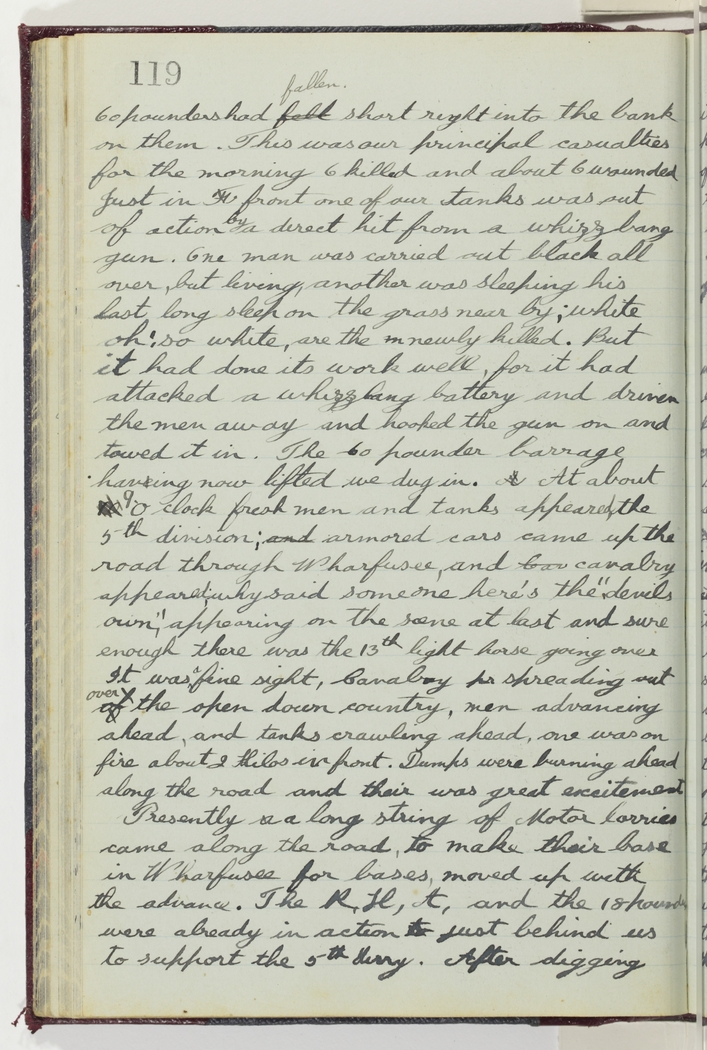 119
fallen.
60 pounders had fell short right into the bank
on them. This was our principal casualties
for the morning 6 killed and about 6 wounded
Just in front one of our tanks was out
of action by a direct hit from a whizz bang
gun. One man was carried out black all
over, but living, another was sleeping his
last, long sleep on the grass near by; white
oh! so white, are the newly killed. But
it had done its work well, for it had
attacked a whizz bang battery and driven
the men away and hooked the gun on and
towed it in. The 60 pounder barrage
having now lifted we dug in. At about
9 O clock fresh men and tanks appeared, the
5th division; and armored cars came up the
road through Wharfusee, and cavalry
appeared, why said someone here's the "devils
own", appearing on the scene at last and sure
enough there was the 13th light horse going over
It was a fine sight, Cavalry spreading out
over the open down country, men advancing
ahead, and tanks crawling ahead, one was on
fire about 2 Kilos in front. Dumps were burning ahead
along the road and their was great excitement
Presently a long string of Motor lorries
came along the road, to make their base
in Wharfusee for bases, moved up with
the advance. The R, H, A, and the 18 pounder
were already in action to just behind us
to support the 5th Divvy. After digging